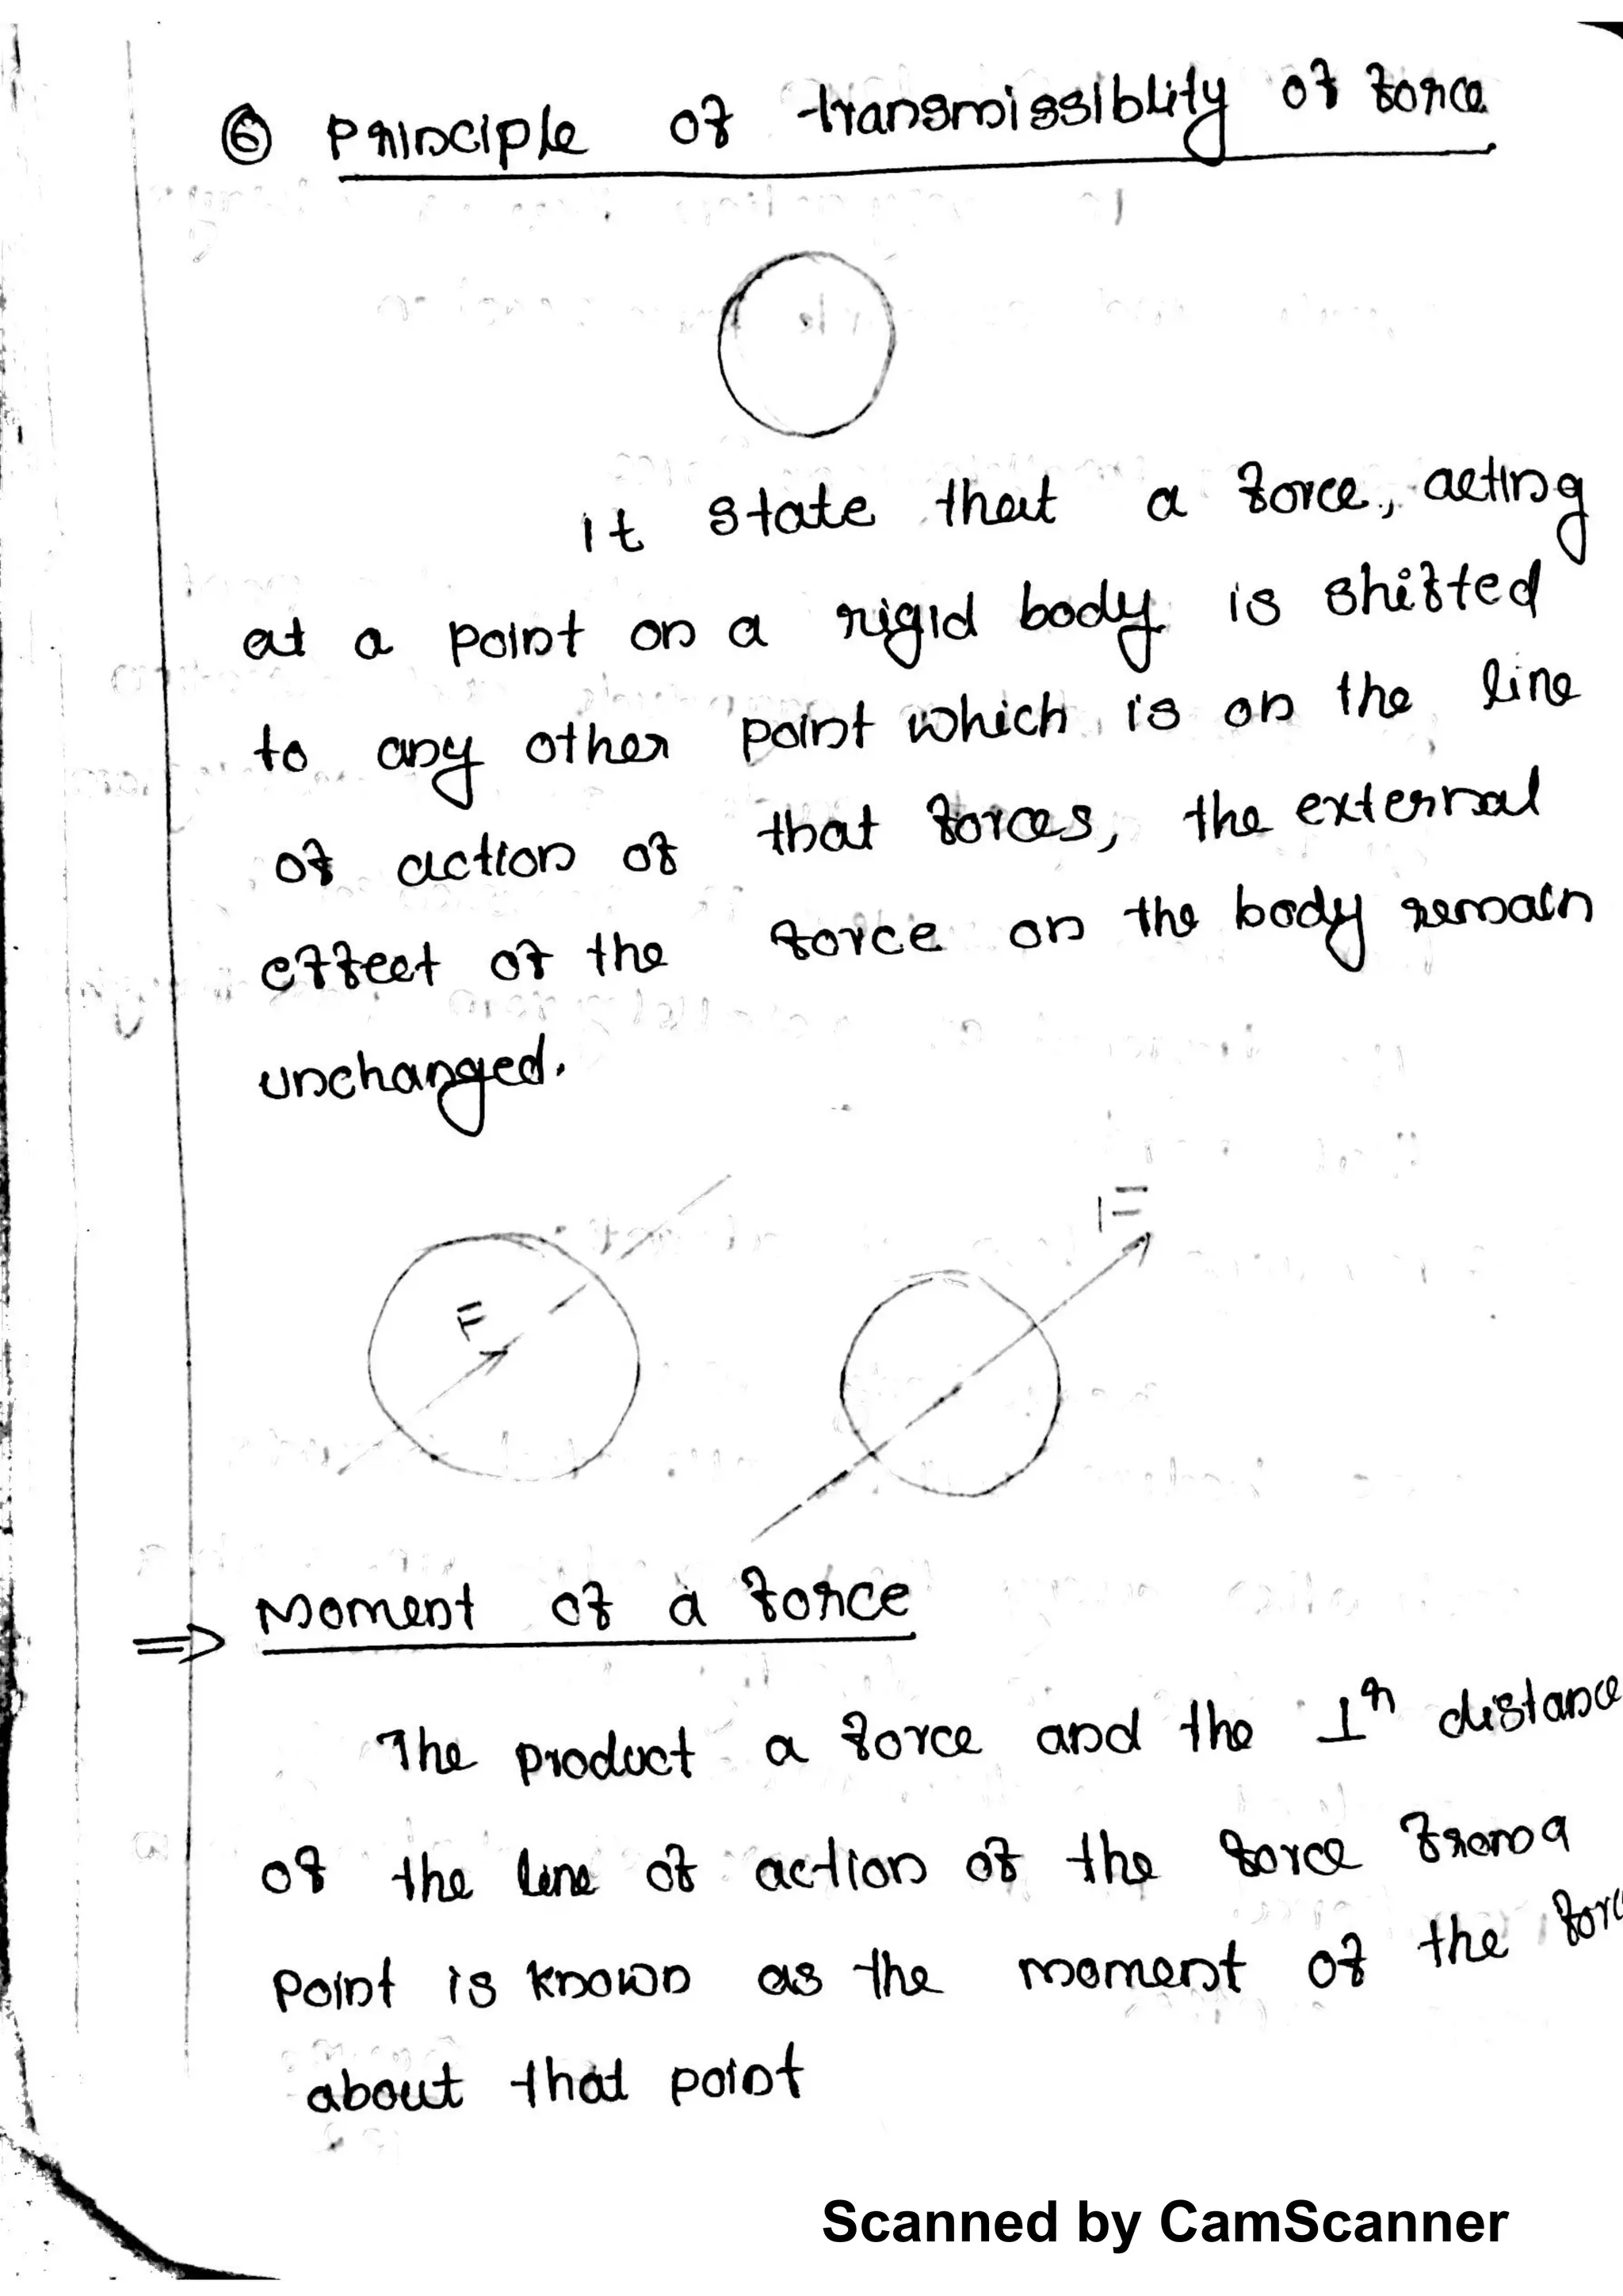 ⑥ Principle of transmissiblity of force
It state that a force, acting
at a point on a rigid body is shifted
to any other point which is on the line
of action of that forces, the external
effect of the force on the body remain
unchanged.
F
F
⇒ Moment of a force
The product a force and the ⊥r distance
of the line of action of the force from a
point is known as the moment of the force
about that point
Scanned by CamScanner